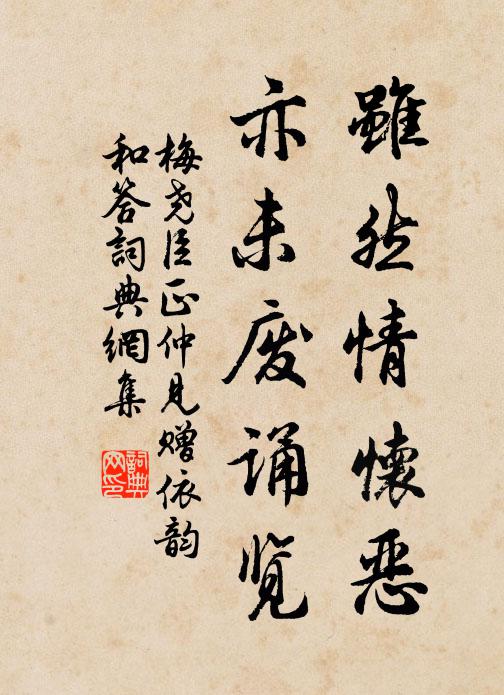 雖然情懷惡
亦未废誦覧
梅尧臣正仲見贈依韵
和答詞典網集
詞典
网印